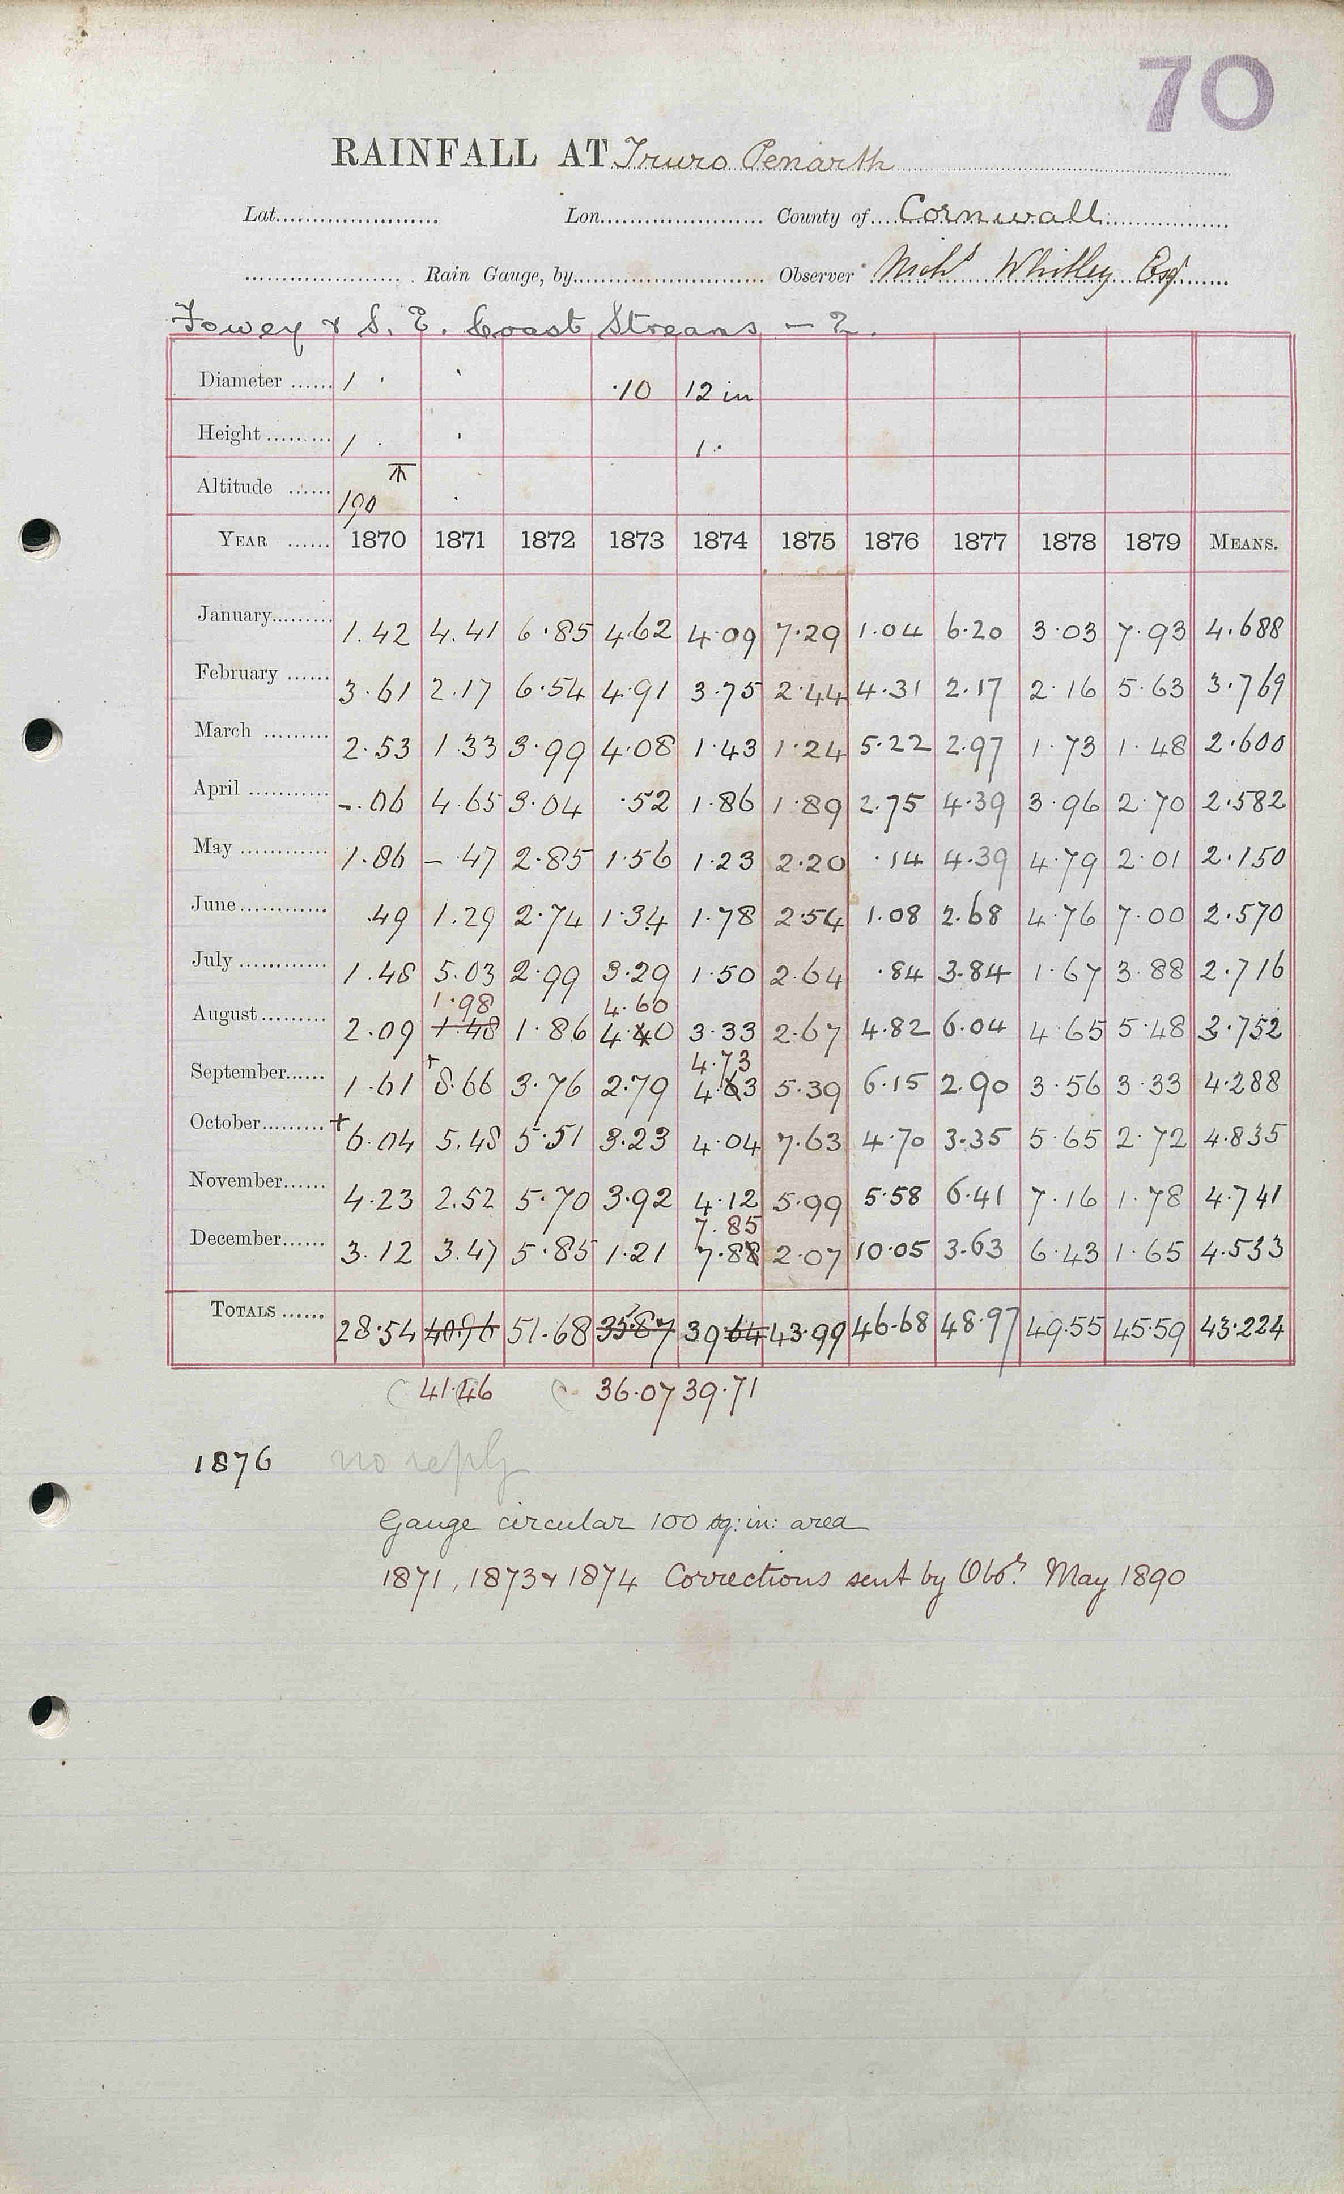 70
RAINFALL AT Truro Penarth
Lat. Lon. County of Cornwall
Rain Gauge, by Observer Nichs Whitley Esqr
Fowey & S. E. Coast Streams — 2.
Diameter 1 · ·10 12 in
Height 1 1·
Altitude 190
YEAR 1870 1871 1872 1873 1874 1875 1876 1877 1878 1879 MEANS.
January 1.42 4.41 6.85 4.62 4.09 7.29 1.04 6.20 3.03 7.93 4.688
February 3.61 2.17 6.54 4.91 3.75 2.44 4.31 2.17 2.16 5.63 3.769
March 2.53 1.33 3.99 4.08 1.43 1.24 5.22 2.97 1.73 1.48 2.600
April -.06 4.65 3.04 .52 1.86 1.89 2.75 4.39 3.96 2.70 2.582
May 1.86 – 47 2.85 1.56 1.23 2.20 .14 4.39 4.79 2.01 2.150
June .49 1.29 2.74 1.34 1.78 2.54 1.08 2.68 4.76 7.00 2.570
July 1.48 5.03 2.99 3.29 1.50 2.64 .84 3.84 1.67 3.88 2.716
1.98 4.60
August 2.09 1.48 1.86 4.40 3.33 2.67 4.82 6.04 4.65 5.48 3.752
4.73
September 1.61 +8.66 3.76 2.79 4.63 5.39 6.15 2.90 3.56 3.33 4.288
October +6.04 5.48 5.51 3.23 4.04 7.63 4.70 3.35 5.65 2.72 4.835
November 4.23 2.52 5.70 3.92 4.12 5.99 5.58 6.41 7.16 1.78 4.741
7.85
December 3.12 3.47 5.85 1.21 7.88 2.07 10.05 3.63 6.43 1.65 4.533
TOTALS 28.54 40.96 51.68 35.87 39.64 43.99 46.68 48.97 49.55 45.59 43.224
41.46 36.07 39.71
1876 no reply
Gauge circular 100 sq: in: area
1871, 1873 & 1874 Corrections sent by Obsr. May 1890